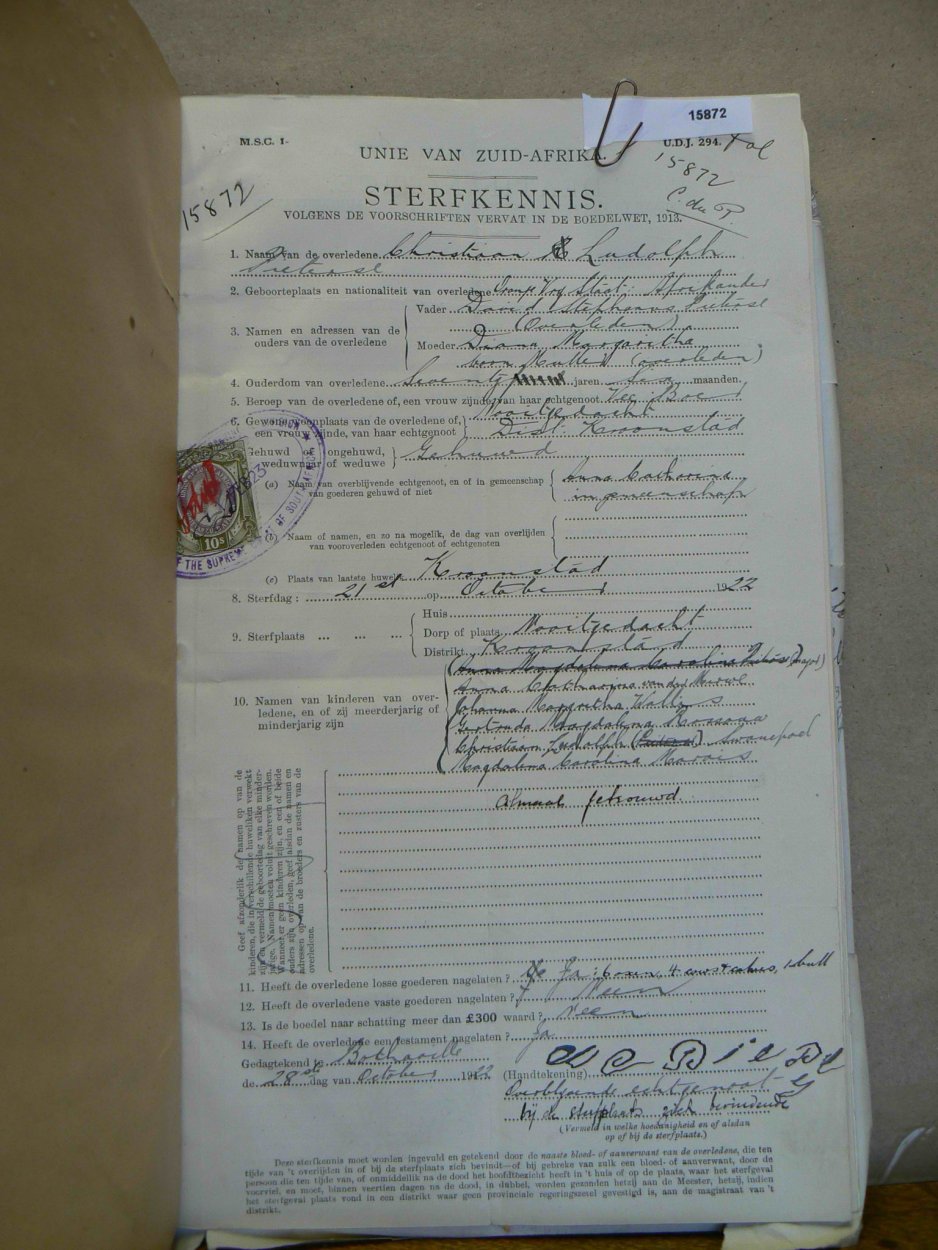 15872
M.S.C. 1-
U.D.J. 294.
UNIE VAN ZUID-AFRIKA.
15872
15872
STERFKENNIS.
VOLGENS DE VOORSCHRIFTEN VERVAT IN DE BOEDELWET, 1913.
1. Naam van de overledene Christiaan Ludolph
2. Geboorteplaats en nationaliteit van overledene Oranje Vry Staat: Afrikander
Vader David Stephanus
3. Namen en adressen van de ouders van de overledene
(Overleden)
Moeder Diana Margaritha
born Muller (overleden)
4. Ouderdom van overledene Seventy jaren maanden.
5. Beroep van de overledene of, een vrouw zijnde, van haar echtgenoot. Vee Boer
6. Gewone woonplaats van de overledene of, een vrouw zijnde, van haar echtgenoot
Nooitgedacht
Dist. Kroonstad
Gehuwd of ongehuwd, weduwnaar of weduwe Gehuwd
(a) Naam van overblijvende echtgenoot, en of in gemeenschap van goederen gehuwd of niet
Anna Catharina
in gemeenschap
(b) Naam of namen, en zo na mogelik, de dag van overlijden van vooroverleden echtgenoot of echtgenoten
10s
OF THE SUPREME OF SOUTH AFRICA
(c) Plaats van laatste huwelik Kroonstad
8. Sterfdag: 21st op October 1922
Huis
9. Sterfplaats ... ... ...
Dorp of plaats Nooitgedacht
Distrikt Kroonstad
Anna Magdalena Carolina
10. Namen van kinderen van overledene, en of zij meerderjarig of minderjarig zijn
Anna Catharina van der Merwe
Johanna Margritha
Gertruda Magdalena
Christiaan Ludolph Swanepoel
Magdalena Carolina Marais
almaal getrouwd
Geef afzonderlik de namen op van de
kinderen, die in verschillende huweliken verwekt
zijn en vermeld de geboortedag van elke minder-
jarige. Namen moeten voluit geschreven worden.
Wanneer er geen kinderen zijn, en een of beide
ouders zijn overleden, geef alsdan de namen en
adressen op van de broeders en zusters van de
overledene.
11. Heeft de overledene losse goederen nagelaten? Ja: 6 oxen, 4 cows & calves, 1 bull
12. Heeft de overledene vaste goederen nagelaten? Neen
13. Is de boedel naar schatting meer dan £300 waard? Neen
14. Heeft de overledene een testament nagelaten? Ja
Gedagtekend te Bothaville
de 28ste dag van October 1922
(Handtekening)
Overblyvende echtgenoot
bij de sterfplaats zich bevindende
(Vermeld in welke hoedanigheid en of alsdan
op of bij de sterfplaats.)
Deze sterfkennis moet worden ingevuld en getekend door de naaste bloed- of aanverwant van de overledene, die ten
tijde van 't overlijden in of bij de sterfplaats zich bevindt—of bij gebreke van zulk een bloed- of aanverwant, door de
persoon die ten tijde van, of onmiddellik na de dood het hoofdbezicht heeft in 't huis of op de plaats, waar het sterfgeval
voorviel, en moet, binnen veertien dagen na de dood, in dubbel, worden gezonden hetzij aan de Meester, hetzij, indien
het sterfgeval plaats vond in een distrikt waar geen provinciale regeringszetel gevestigd is, aan de magistraat van 't
distrikt.